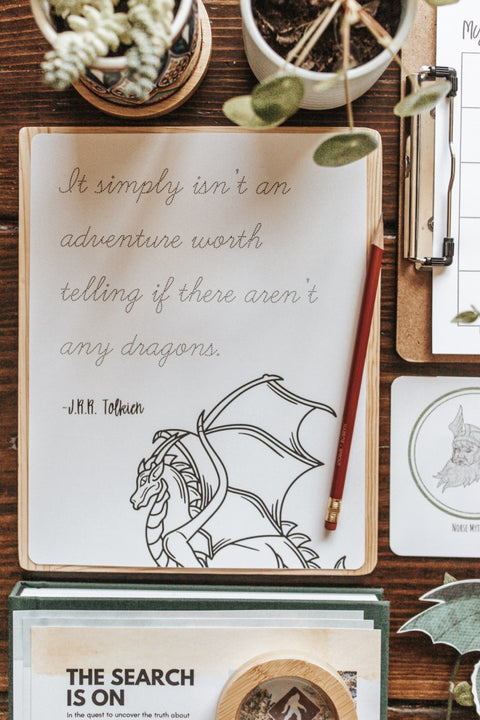 My
It simply isn't an
adventure worth
telling if there aren't
any dragons.
-J.R.R. Tolkien
Norse Myt
THE SEARCH
IS ON
In the quest to uncover the truth about